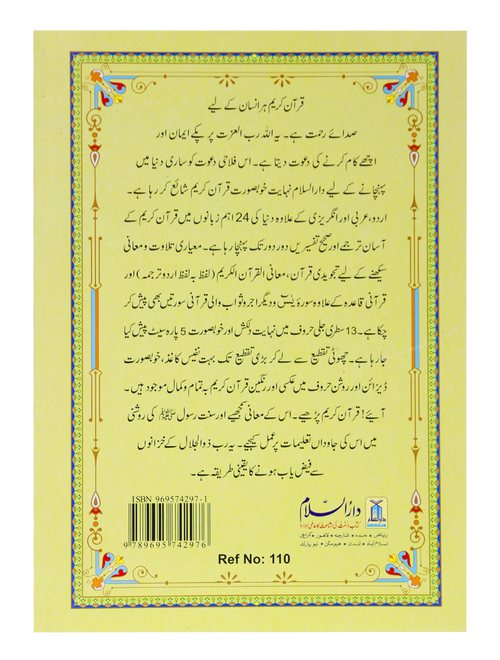 قرآن کریم ہر انسان کے لیے
صدائے رحمت ہے۔ یہ اللہ رب العزت پر پکے ایمان اور
اچھے کام کرنے کی دعوت دیتا ہے۔ اس فلاحی دعوت کو ساری دنیا میں
پہنچانے کے لیے دارالسلام نہایت خوبصورت قرآن کریم شائع کر رہا ہے۔
اردو، عربی اور انگریزی کے علاوہ دنیا کی 24 اہم زبانوں میں قرآن کریم کے
آسان ترجمے اور صحیح تفسیریں دور دور تک پہنچا رہا ہے۔ معیاری تلاوت و معانی
سیکھنے کے لیے تجویدی قرآن، معانی القرآن الکریم (لفظ بہ لفظ اردو ترجمہ) اور
قرآنی قاعدہ کے علاوہ سورۂ یٰسٓ و دیگر اجر و ثواب والی قرآنی سورتیں بھی پیش کر
چکا ہے۔ 13 سطری جلی حروف میں نہایت دلکش اور خوبصورت 5 پارہ سیٹ پیش کیا
جا رہا ہے۔ چھوٹی تقطیع سے لے کر بڑی تقطیع تک بہت نفیس کاغذ، خوبصورت
ڈیزائن اور روشن حروف میں عکسی اور رنگین قرآن کریم بہ تمام و کمال موجود ہیں۔
آیئے! قرآن کریم پڑھیے۔ اس کے معانی سمجھیے اور سنت رسول ﷺ کی روشنی
میں اس کی جاوداں تعلیمات پر عمل کیجیے۔ یہ رب ذوالجلال کے خزانوں
سے فیض یاب ہونے کا یقینی طریقہ ہے۔
ISBN 969574297-1
9 789695 742976
دارالسلام
کتاب و سنت کی اشاعت کا عالمی ادارہ
ریاض ٭ جدہ ٭ شارجہ ٭ لاہور ٭ کراچی
اسلام آباد ٭ لندن ٭ ہیوسٹن ٭ نیو یارک
دارالسلام
DARUSSALAM
Ref No: 110